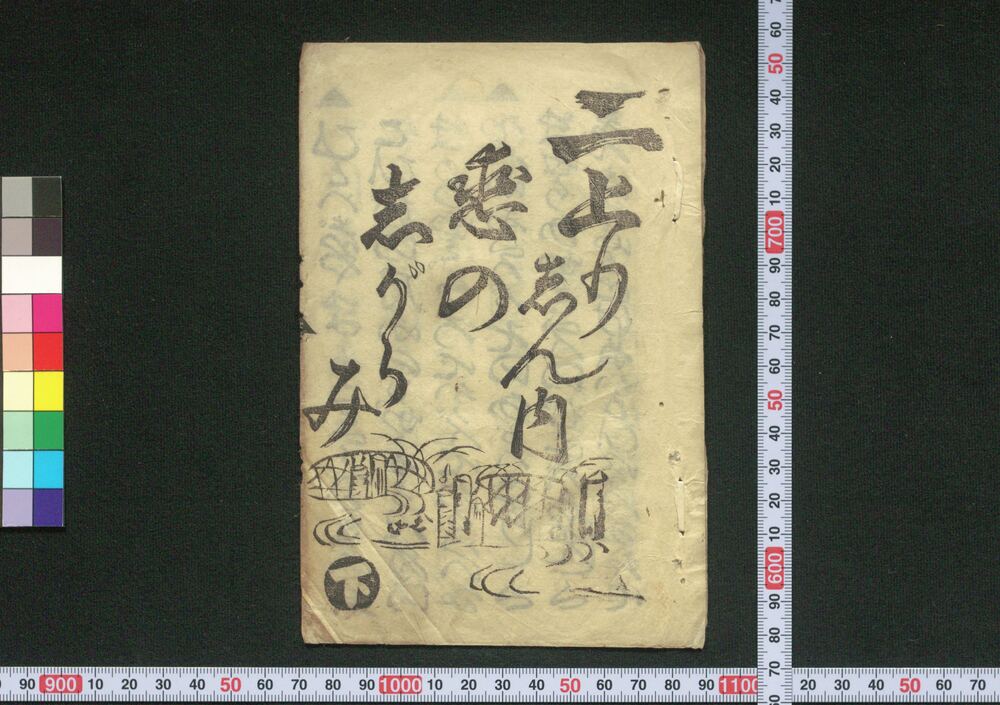 二上り
志ん内
恋の
志がらみ
下
60 50 40 30 20 10 700 90 80 70 60 50 40 30 20 10 600 90 80 70 60
90 900 10 20 30 40 50 60 70 80 90 1000 10 20 30 40 50 60 70 80 90 1100 20 30 40 50 60 70